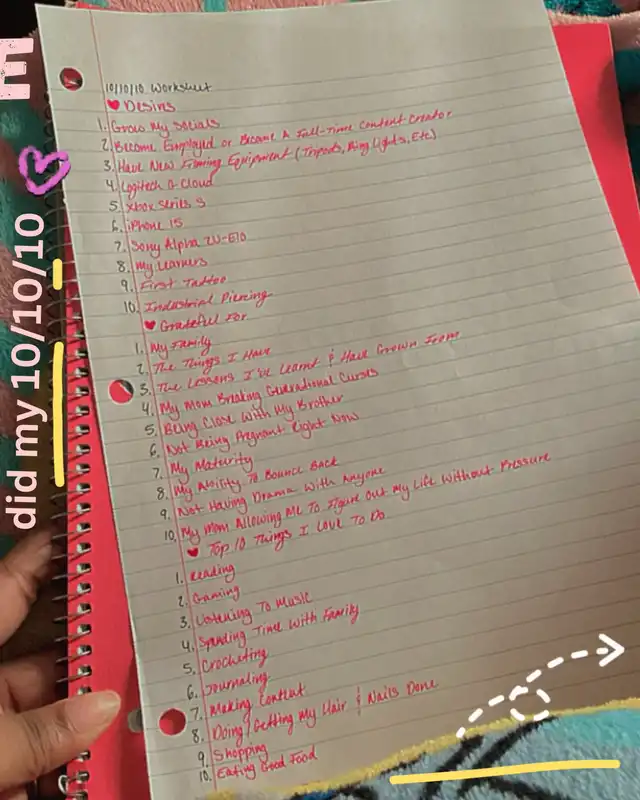 E
did my 10/10/10
10/10/10 Worksheet
♥ Desires
1. Grow My Socials
2. Become Employed or Become A Full-Time Content Creator
3. Have New Filming Equipment (Tripods, Ring Lights, Etc)
4. Logitech G Cloud
5. Xbox Series S
6. iPhone 15
7. Sony Alpha ZV-E10
8. My Learners
9. First Tattoo
10. Industrial Piercing
♥ Grateful For
1. My Family
2. The Things I Have
3. The Lessons I've Learnt & Have Grown From
4. My Mom Breaking Generational Curses
5. Being Close With My Brother
6. Not Being Pregnant Right Now
7. My Maturity
8. My Ability To Bounce Back
9. Not Having Drama With Anyone
10. My Mom Allowing Me To Figure Out My Life Without Pressure
♥ Top 10 Things I Love To Do
1. Reading
2. Gaming
3. Listening To Music
4. Spending Time With Family
5. Crocheting
6. Journaling
7. Making Content
8. Doing/Getting My Hair & Nails Done
9. Shopping
10. Eating Good Food